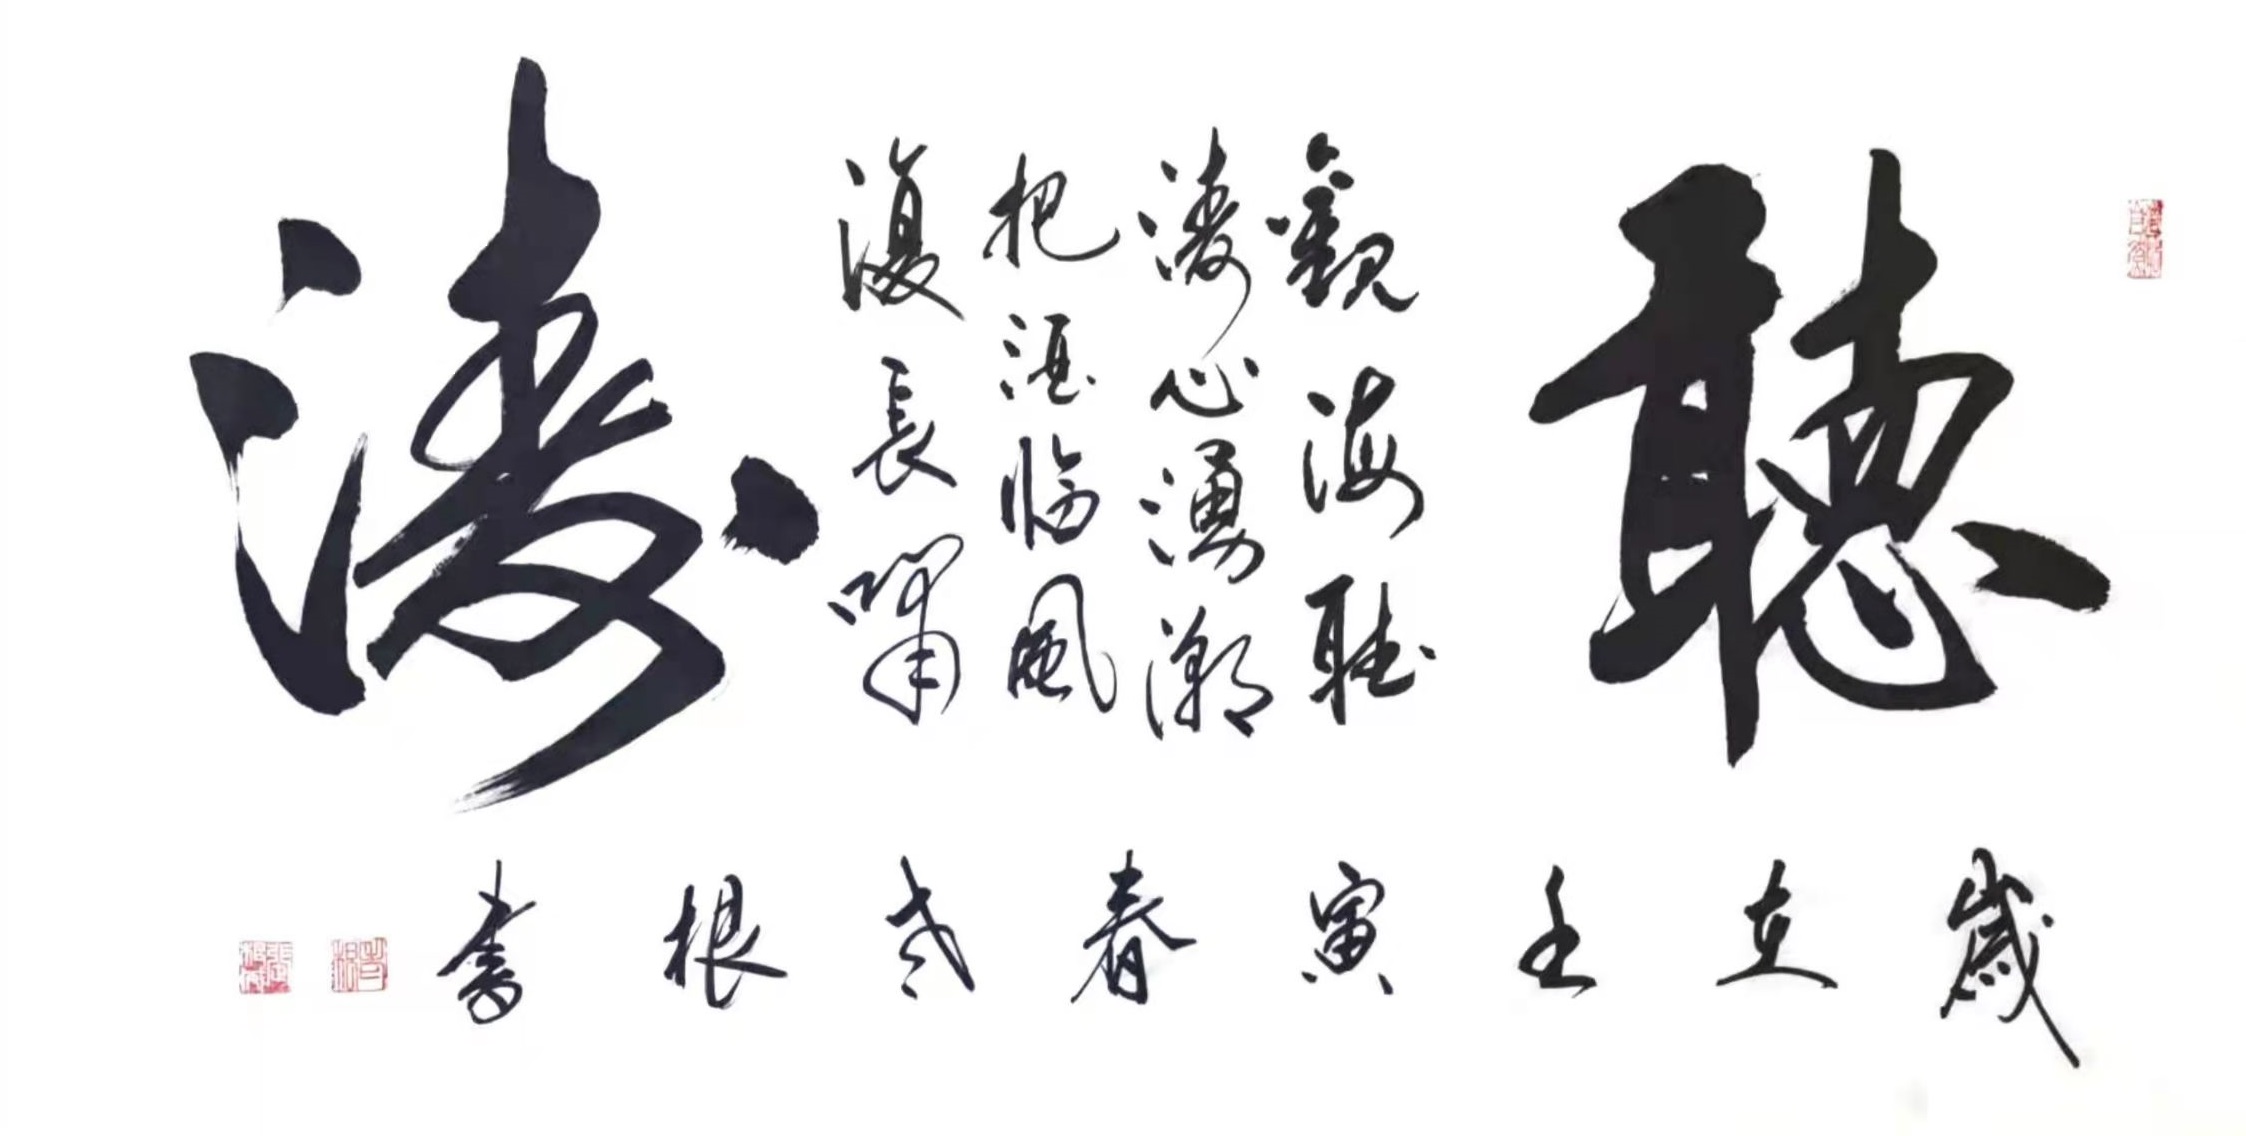 聽
觀海聽
濤心湧潮
把酒臨風
復長嘯
濤
歲在壬寅春老根書